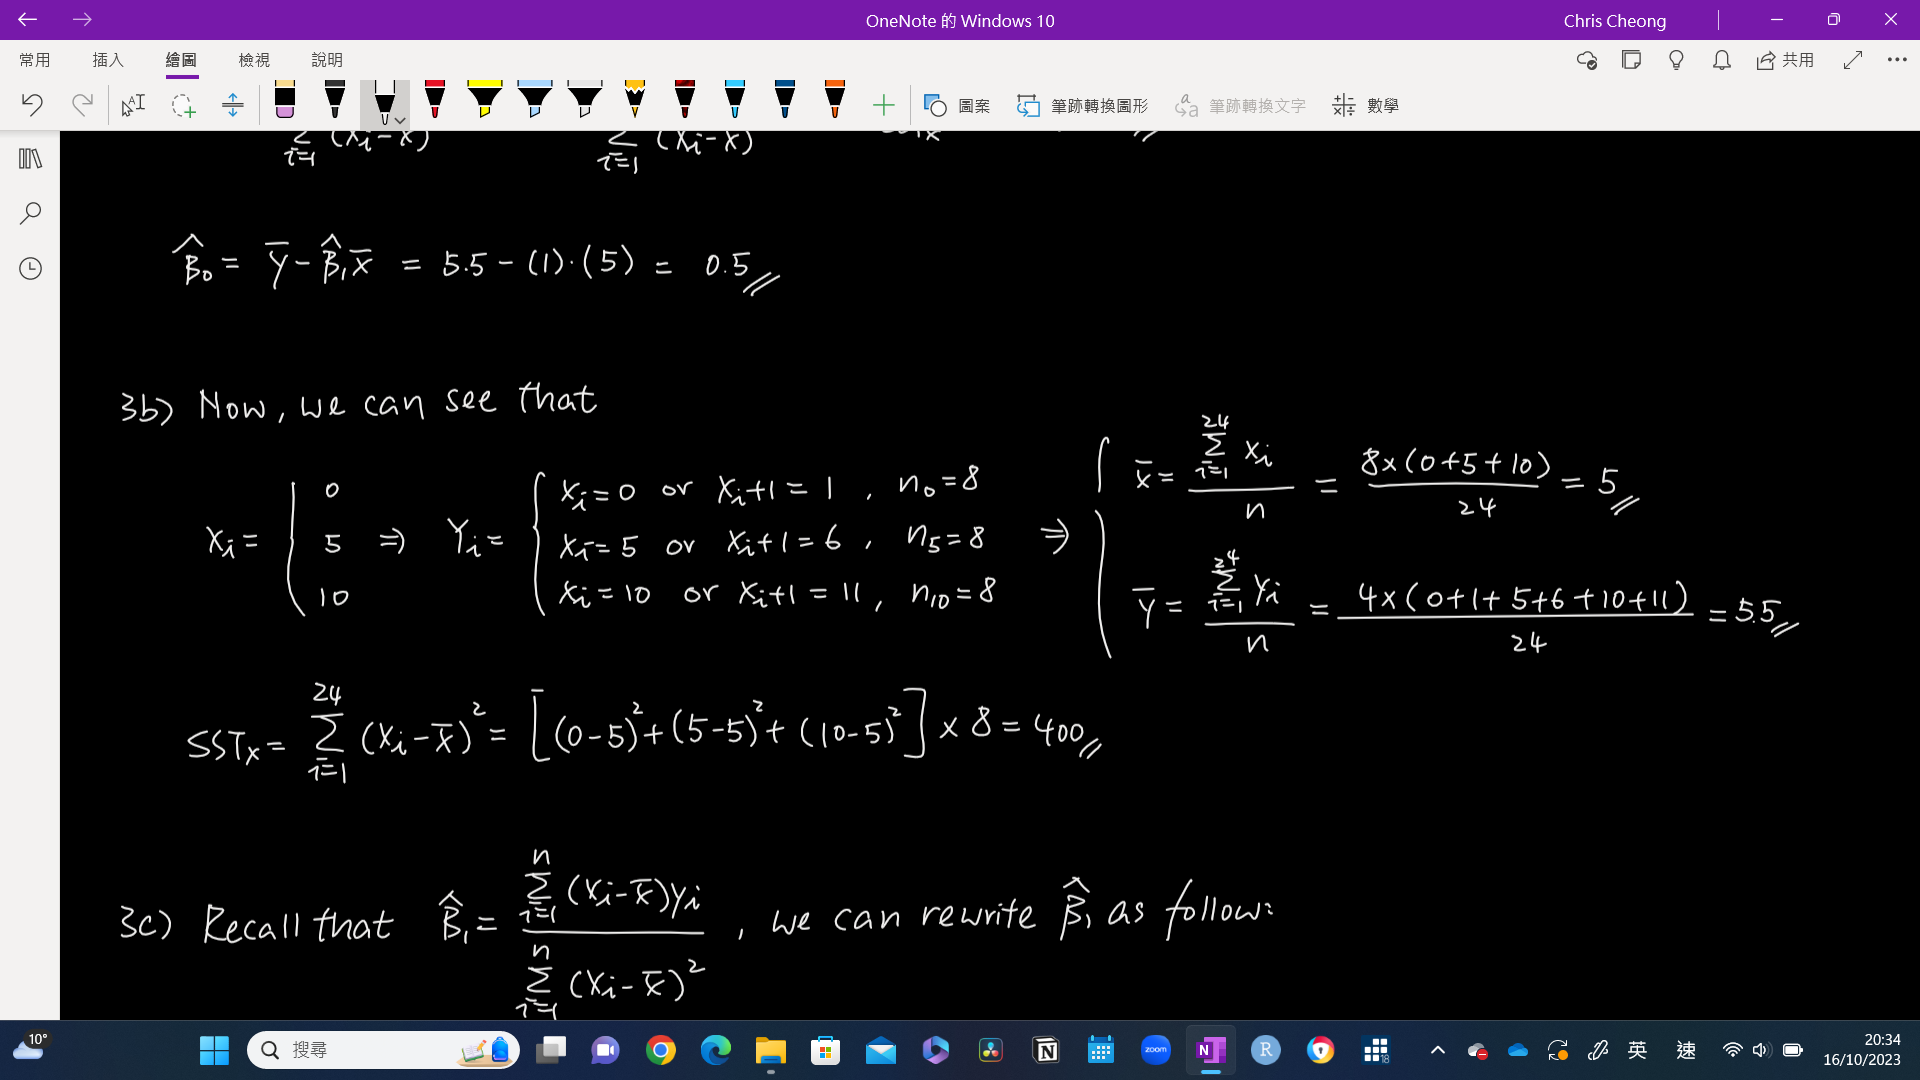 OneNote 的 Windows 10
Chris Cheong
常用 插入 繪圖 檢視 說明
共用
圖案 筆跡轉換圖形 筆跡轉換文字 數學
Σ i=1 (xi-x̄) Σ i=1 (xi-x̄)
β̂₀ = ȳ - β̂₁x̄ = 5.5 - (1)·(5) = 0.5
3b) Now, we can see that
xi = { 0, 5, 10 ⇒ Yi = {
xi = 0 or xi+1 = 1, n₀ = 8
xi = 5 or xi+1 = 6, n₅ = 8
xi = 10 or xi+1 = 11, n₁₀ = 8
⇒ { x̄ = Σ_{i=1}^{24} xi / n = 8×(0+5+10) / 24 = 5
ȳ = Σ_{i=1}^{24} yi / n = 4×(0+1+5+6+10+11) / 24 = 5.5
SSTx = Σ_{i=1}^{24} (xi-x̄)² = [(0-5)²+(5-5)²+(10-5)²] × 8 = 400
3c) Recall that β̂₁ = Σ_{i=1}^{n} (xi-x̄)yi / Σ_{i=1}^{n} (xi-x̄)², we can rewrite β̂₁ as follow:
10°
搜尋
zoom
18
英 速
20:34
16/10/2023